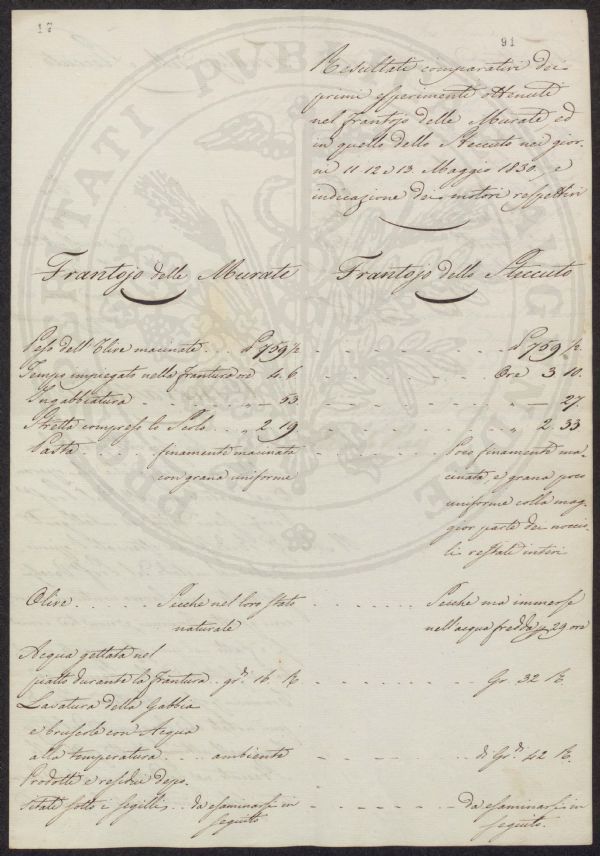 17
91
Resultati comparativi dei
primi esperimenti ottenuti
nel Frantojo delle Murate ed
in quello dello Steccuto nei gior-
ni 11 12 e 13. Maggio 1830. e
indicazione dei motori respettivi
Frantojo delle Murate Frantojo dello Steccuto
Peso dell'Olive macinate . . . £ 759 1/2 £ 759 1/2.
Tempo impiegato nella frantura ore 4. 6 Ore 3 10.
Ingabbiatura . . . — 53 — 27.
Stretta compreso lo Scolo . . „ 2 19 „ 2. 33
Pasta . . . finamente macinata Poco finamente ma-
con grana uniforme cinata, e grana poco
uniforme colla mag-
gior parte dei noccio-
li restati intieri
Olive . . . . Secche nel loro stato Secche ma immerse
naturale nell'acqua fredda p 29 ore
Acqua gettata nel
piatto durante la frantura . . gr.di 16. R Gr. 32 R.
Lavatura della Gabbia
e bruscole con Acqua
alla temperatura . . . ambiente di Gr.di 42 R.
Prodotti e residui depo-
sitati sotto i sigilli . . da esaminarsi in da esaminarsi in
seguito seguito.